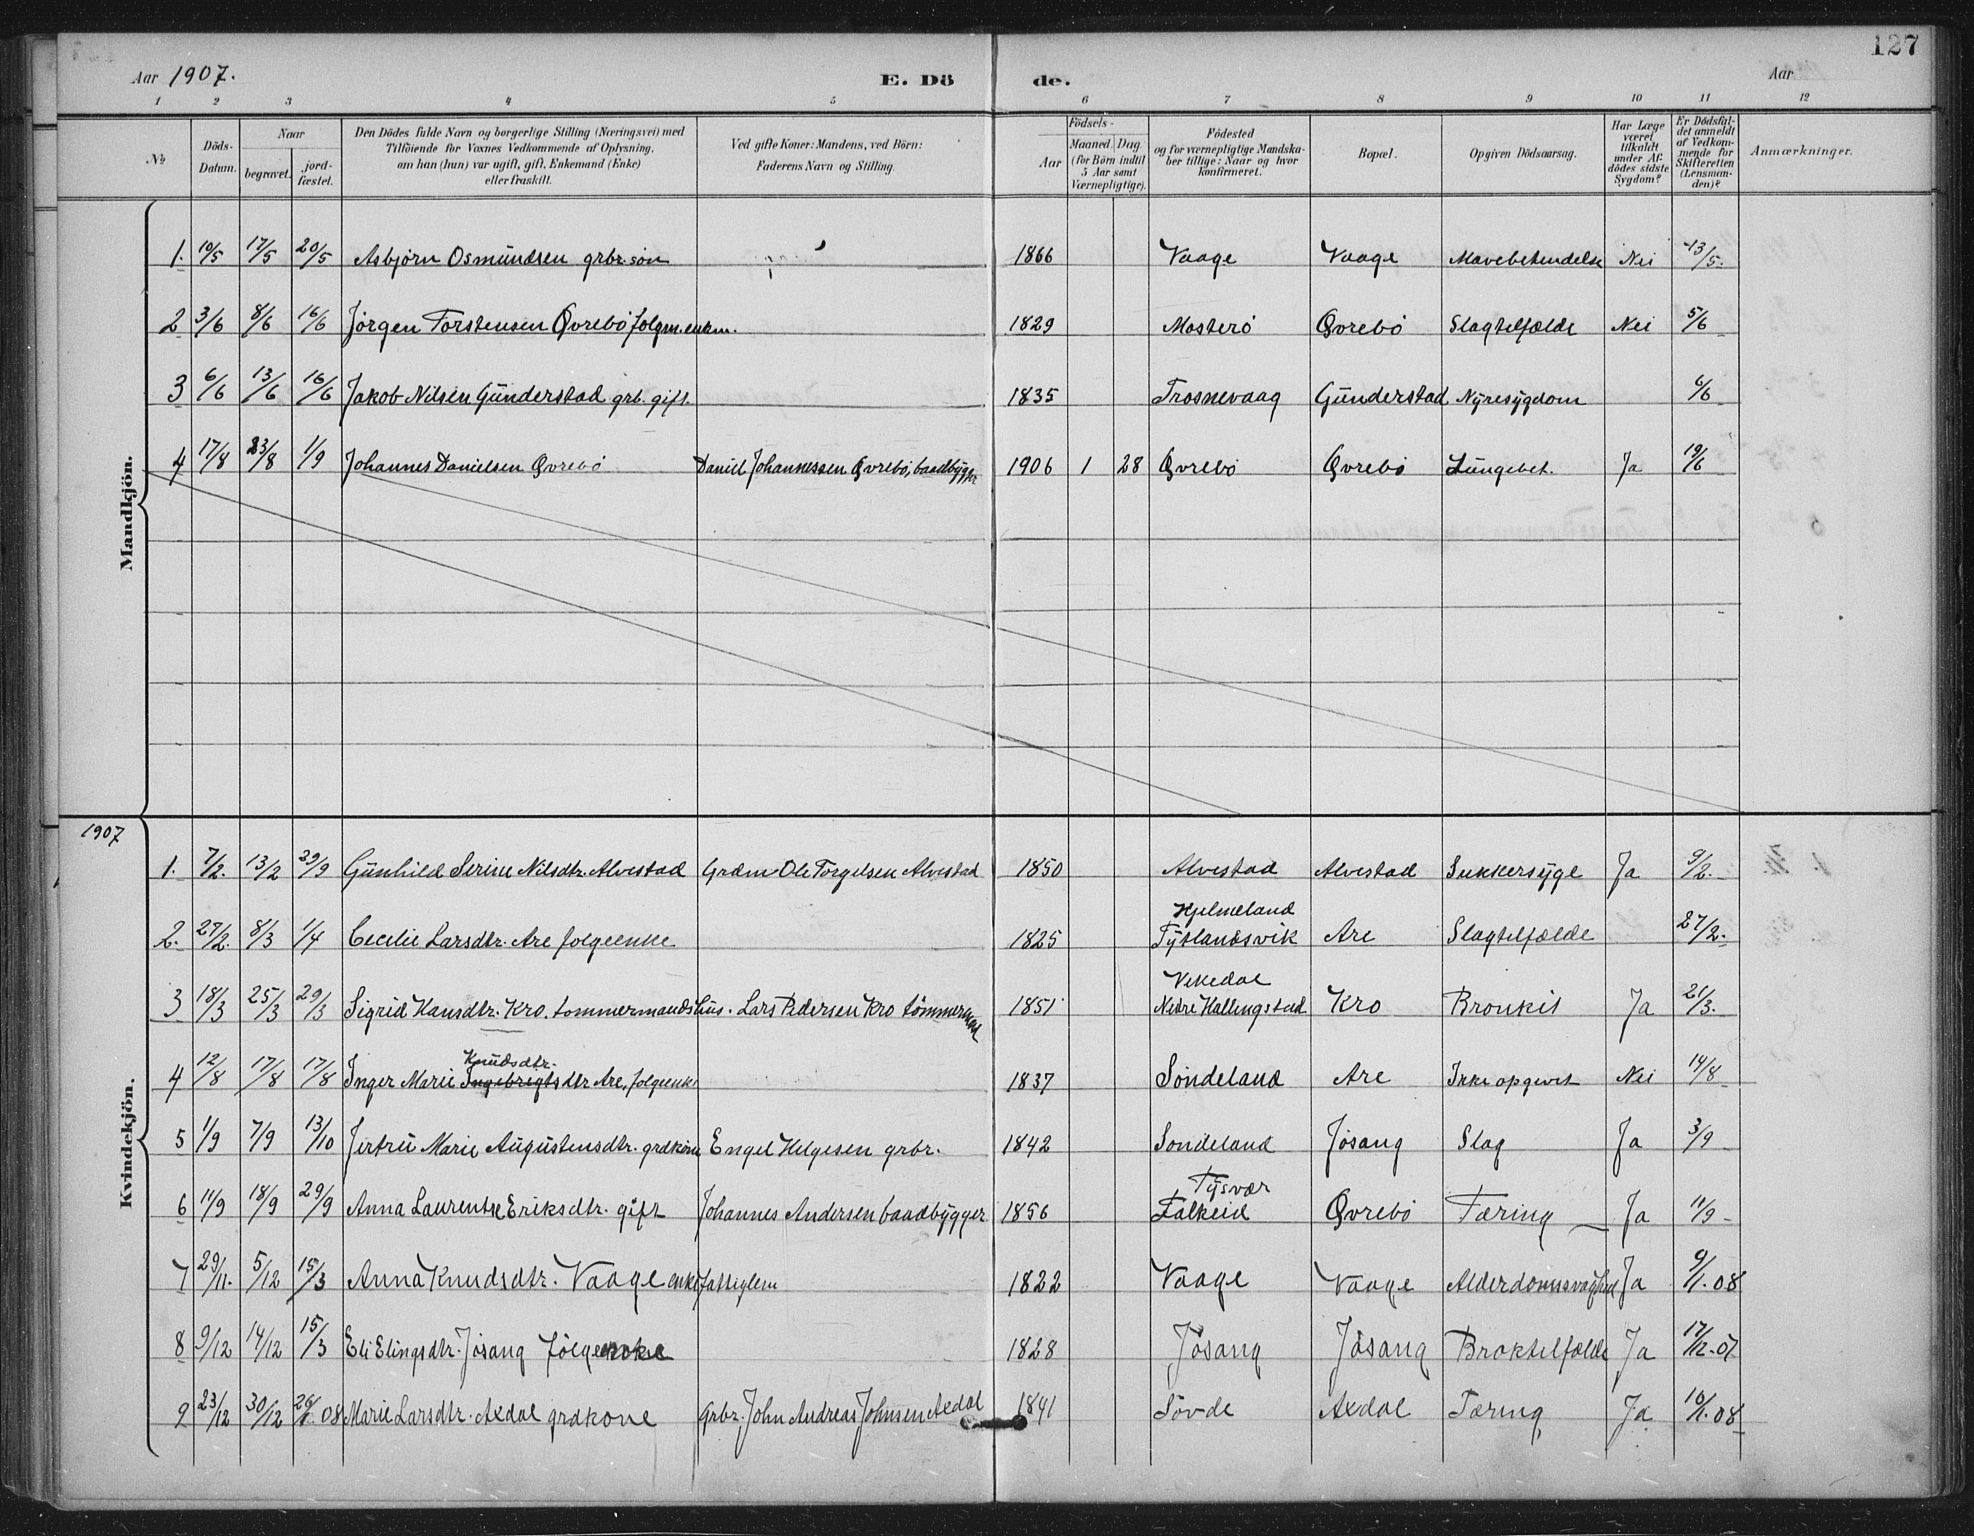 127
Aar 1907. E. Dö de. Aar
1 2 3 4 5 6 7 8 9 10 11 12
No
Döds-Datum.
Naar
begravet.
jord-fæstet.
Den Dödes fulde Navn og borgerlige Stilling (Næringsvei) med
Tilföiende for Voxnes Vedkommende af Oplysning,
om han (hun) var ugift, gift, Enkemand (Enke)
eller fraskilt.
Ved gifte Koner: Mandens, ved Börn:
Faderens Navn og Stilling.
Födsels-
Aar
Maaned. Dag.
(for Börn indtil
5 Aar samt
Værnepligtige).
Födested
og for værnepligtige Mandska-
ber tillige: Naar og hvor
konfirmeret.
Bopæl.
Opgiven Dödsaarsag.
Har Læge
været
tilkaldt
under Af-
dödes sidste
Sygdom?
Er Dödsfal-
det anmeldt
af Vedkom-
mende for
Skifteretten
(Lensman-
den)?
Anmærkninger.
Mandkjön.
1. 10/5 17/5 20/5 Asbjørn Osmundsen grbr.søn 1866 Vaage Vaage Mavebetendelse Nei 13/5
2 3/6 8/6 16/6 Jørgen Torstensen Øvrebø folgm. enkm. 1829 Mosterø Øvrebø Slagtilfælde Nei 5/6
3 6/6 13/6 16/6 Jakob Nilsen Gunderstad grb. gift. 1835 Trosnevaag Gunderstad Nyresygdom 6/6
4 17/8 23/8 1/9 Johannes Danielsen Øvrebø Daniel Johannessen Øvrebø, baadbygger 1906 1 28 Øvrebø Øvrebø Lungebet. Ja 19/6
1907
Kvindekjön.
1. 7/2. 13/2 29/9 Gunhild Serine Nilsdtr. Alvestad Grdm Ole Torgelsen Alvestad 1850 Alvestad Alvestad Sukkersyge Ja 9/2.
Hjelmeland
2. 27/2. 8/3 1/4 Cecilie Larsdtr. Are folgeenke 1825 Tytlandsvik Are Slagtilfælde 27/2.
Vikedal
3 18/3 25/3 29/3 Sigrid Hansdtr. Kro. tømmermands hus. Lars Pedersen Kro tømmermand 1851 Nedre Hallingstad Kro Bronkit Ja 21/3.
Knudsdtr.
4 12/8 17/8 17/8 Inger Marie Ingebrigtsdtr Are, folgeenke 1837 Søndeland Are Ikke opgivet Nei 14/8
5 1/9 7/9 13/10 Jirtru Marie Augustensdtr. grdkone Engel Helgesen grbr. 1842 Søndeland Jøsang Slag Ja 3/9
Tysvær
6 11/9 18/9 29/9 Anna Laurentse Eriksdtr. gift Johannes Andersen baadbygger 1856 Falkeid Øvrebø Tæring Ja 11/9
7 29/11. 5/12 15/3 Anna Knudsdtr. Vaage enke fattiglem 1822 Vaage Vaage Alderdomssvaghed Ja 9/1. 08
8 9/12 14/12 15/3 Eli Elingsdtr. Jøsang følgeenke 1828 Jøsang Jøsang Broktilfælde Ja 17/12.07
9 23/12 30/12 26/1 08 Marie Larsdtr. Axdal grdkone grbr. John Andreas Johnsen Axdal 1841 Søvde Axdal Tæring Ja 10/1. 08